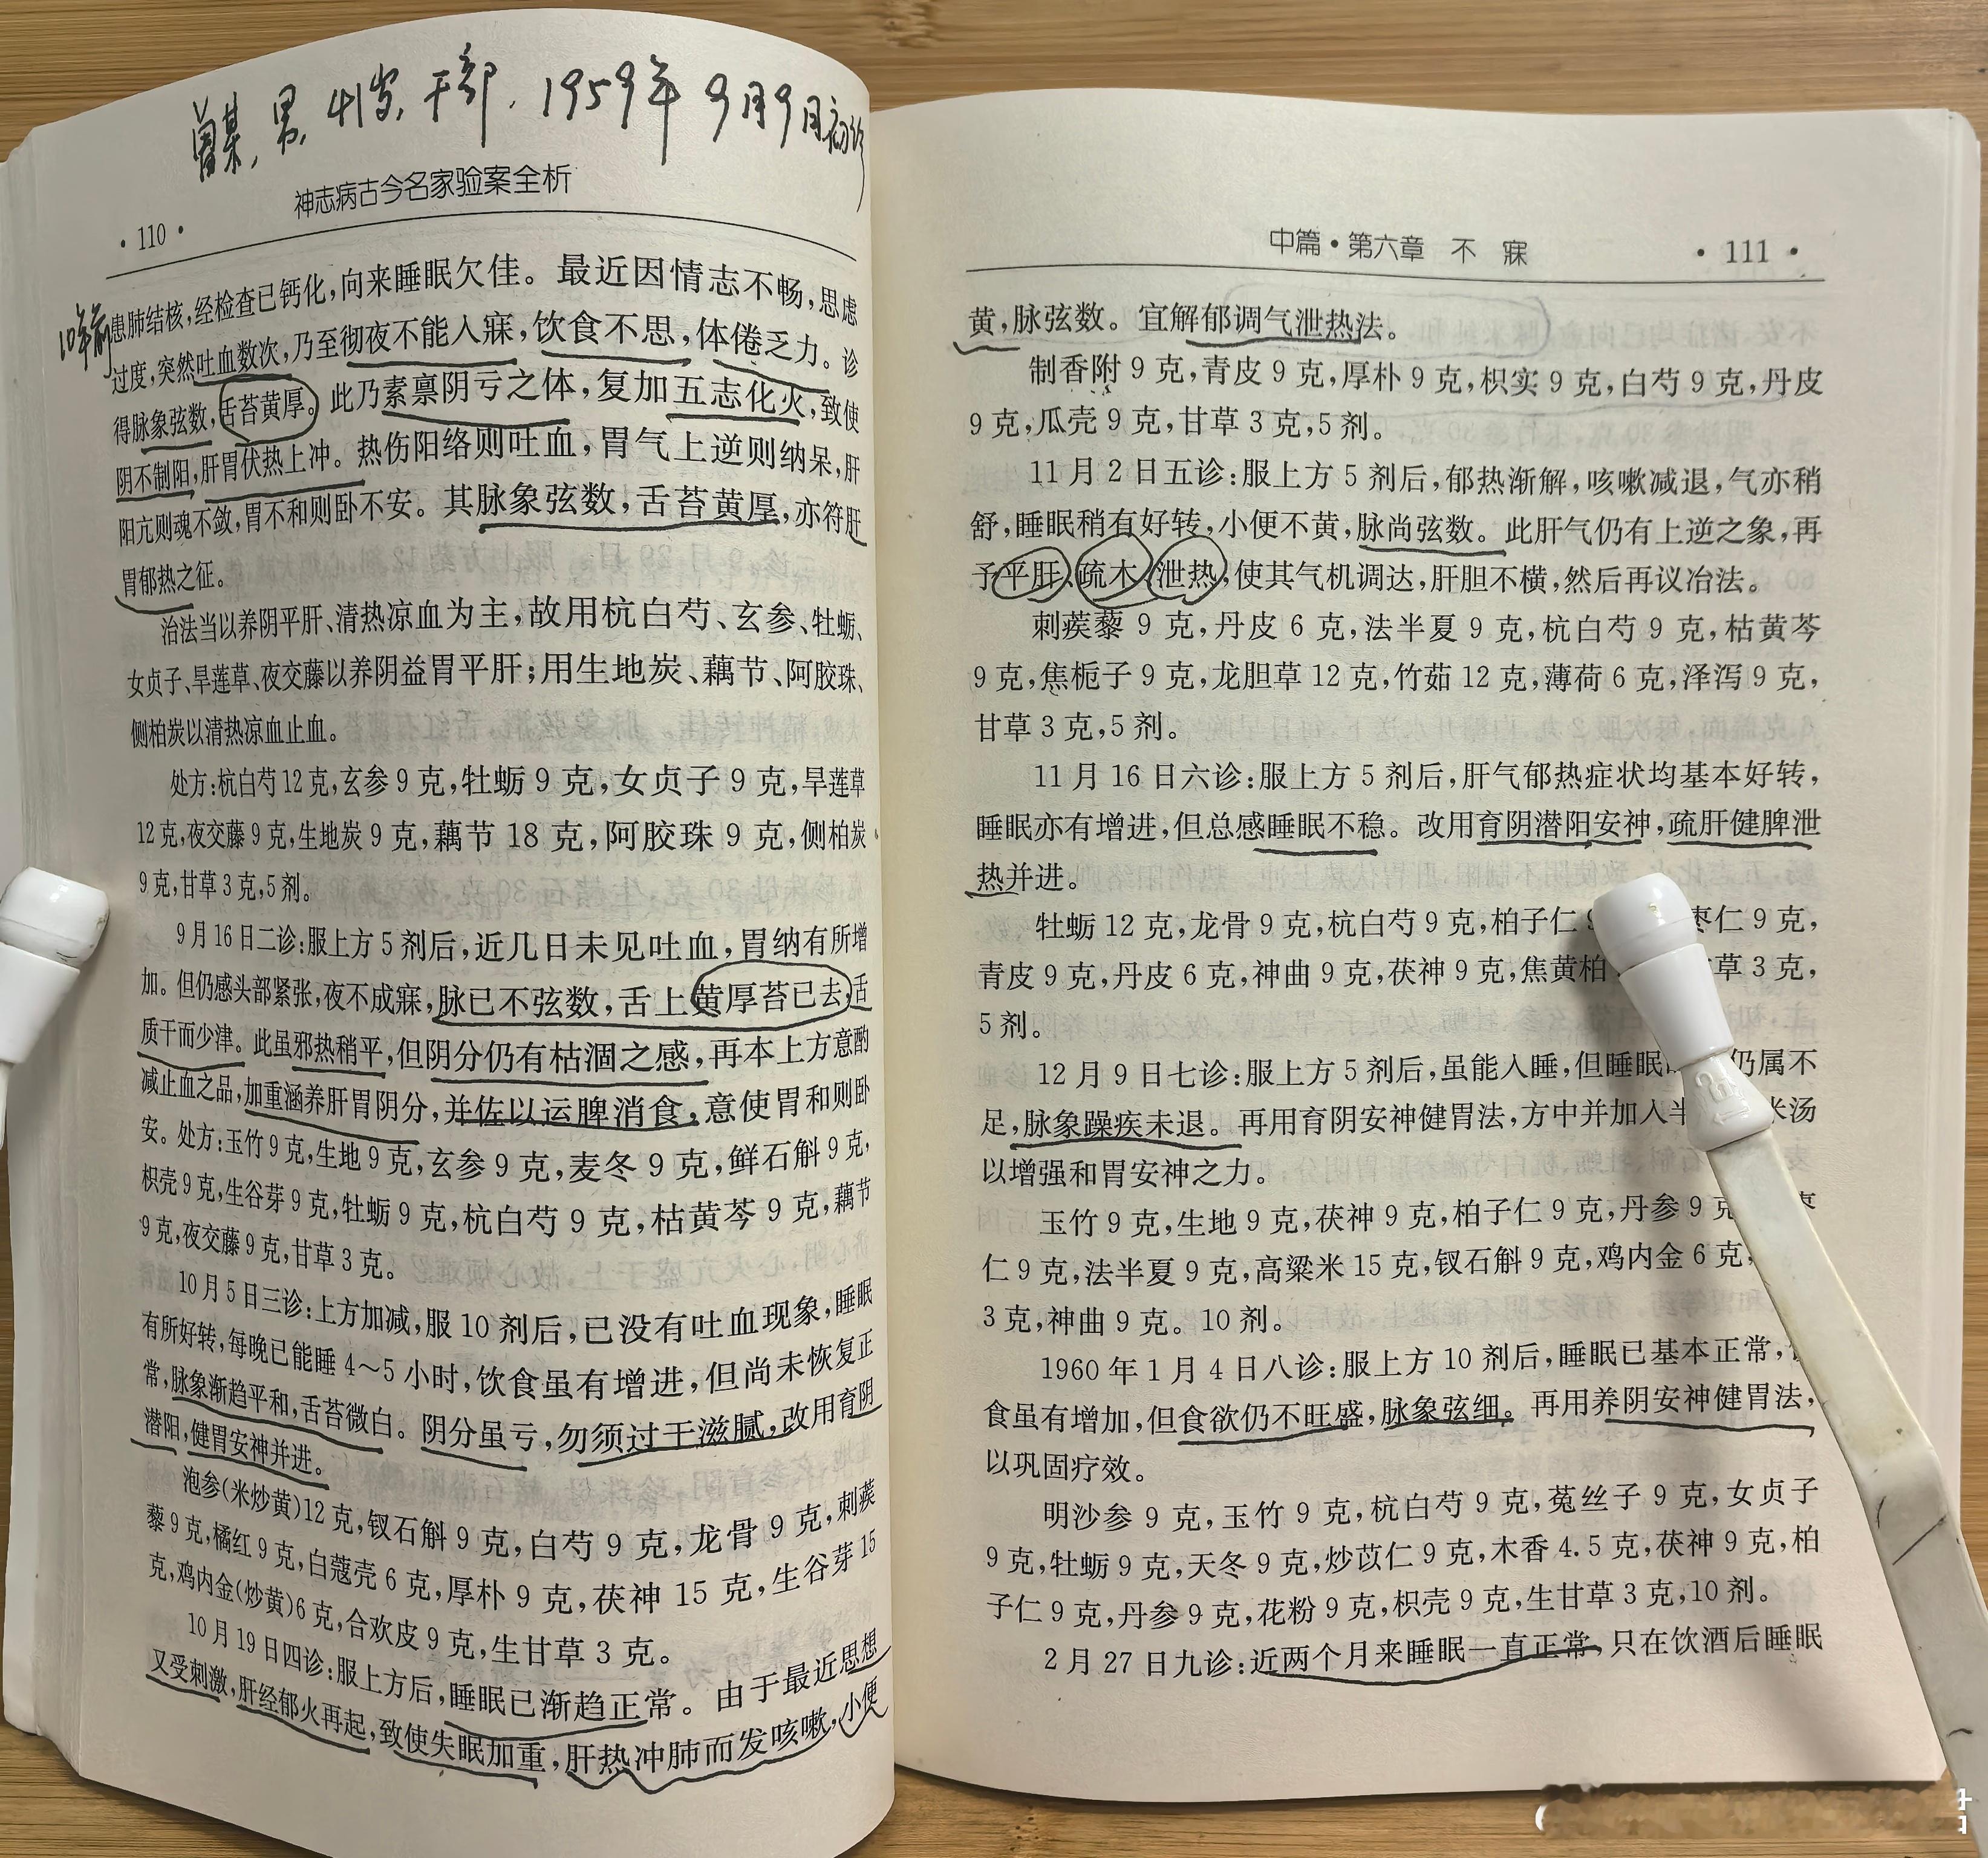 曾某,男,41岁,干部,1959年9月9日初诊
神志病古今名家验案全析
·110·
10年前
患肺结核,经检查已钙化,向来睡眠欠佳。最近因情志不畅,思虑
过度,突然吐血数次,乃至彻夜不能入寐,饮食不思,体倦乏力。诊
得脉象弦数,舌苔黄厚。此乃素禀阴亏之体,复加五志化火,致使
阴不制阳,肝胃伏热上冲。热伤阳络则吐血,胃气上逆则纳呆,肝
阳亢则魂不敛,胃不和则卧不安。其脉象弦数,舌苔黄厚,亦符肝
胃郁热之征。
治法当以养阴平肝、清热凉血为主,故用杭白芍、玄参、牡蛎、
女贞子、旱莲草、夜交藤以养阴益胃平肝;用生地炭、藕节、阿胶珠、
侧柏炭以清热凉血止血。
处方:杭白芍12克,玄参9克,牡蛎9克,女贞子9克,旱莲草
12克,夜交藤9克,生地炭9克,藕节18克,阿胶珠9克,侧柏炭
9克,甘草3克,5剂。
9月16日二诊:服上方5剂后,近几日未见吐血,胃纳有所增
加。但仍感头部紧张,夜不成寐,脉已不弦数,舌上黄厚苔已去,舌
质干而少津。此虽邪热稍平,但阴分仍有枯涸之感,再本上方意酌
减止血之品,加重涵养肝胃阴分,并佐以运脾消食,意使胃和则卧
安。处方:玉竹9克,生地9克,玄参9克,麦冬9克,鲜石斛9克,
枳壳9克,生谷芽9克,牡蛎9克,杭白芍9克,枯黄芩9克,藕节
9克,夜交藤9克,甘草3克。
10月5日三诊:上方加减,服10剂后,已没有吐血现象,睡眠
有所好转,每晚已能睡4～5小时,饮食虽有增进,但尚未恢复正
常,脉象渐趋平和,舌苔微白。阴分虽亏,勿须过于滋腻,改用育阴
潜阳,健胃安神并进。
泡参(米炒黄)12克,钗石斛9克,白芍9克,龙骨9克,刺蒺
藜9克,橘红9克,白蔻壳6克,厚朴9克,茯神15克,生谷芽15
克,鸡内金(炒黄)6克,合欢皮9克,生甘草3克。
10月19日四诊:服上方后,睡眠已渐趋正常。由于最近思想
又受刺激,肝经郁火再起,致使失眠加重,肝热冲肺而发咳嗽,小便
中篇·第六章 不 寐
·111·
黄,脉弦数。宜解郁调气泄热法。
制香附9克,青皮9克,厚朴9克,枳实9克,白芍9克,丹皮
9克,瓜壳9克,甘草3克,5剂。
11月2日五诊:服上方5剂后,郁热渐解,咳嗽减退,气亦稍
舒,睡眠稍有好转,小便不黄,脉尚弦数。此肝气仍有上逆之象,再
予平肝、疏木、泄热,使其气机调达,肝胆不横,然后再议治法。
刺蒺藜9克,丹皮6克,法半夏9克,杭白芍9克,枯黄芩
9克,焦栀子9克,龙胆草12克,竹茹12克,薄荷6克,泽泻9克,
甘草3克,5剂。
11月16日六诊:服上方5剂后,肝气郁热症状均基本好转,
睡眠亦有增进,但总感睡眠不稳。改用育阴潜阳安神,疏肝健脾泄
热并进。
牡蛎12克,龙骨9克,杭白芍9克,柏子仁9 枣仁9克,
青皮9克,丹皮6克,神曲9克,茯神9克,焦黄柏 草3克,
5剂。
12月9日七诊:服上方5剂后,虽能入睡,但睡眠 仍属不
足,脉象躁疾未退。再用育阴安神健胃法,方中并加入半 米汤
以增强和胃安神之力。
玉竹9克,生地9克,茯神9克,柏子仁9克,丹参9克 枣
仁9克,法半夏9克,高粱米15克,钗石斛9克,鸡内金6克,
3克,神曲9克。10剂。
1960年1月4日八诊:服上方10剂后,睡眠已基本正常,
食虽有增加,但食欲仍不旺盛,脉象弦细。再用养阴安神健胃法,
以巩固疗效。
明沙参9克,玉竹9克,杭白芍9克,菟丝子9克,女贞子
9克,牡蛎9克,天冬9克,炒苡仁9克,木香4.5克,茯神9克,柏
子仁9克,丹参9克,花粉9克,枳壳9克,生甘草3克,10剂。
2月27日九诊:近两个月来睡眠一直正常,只在饮酒后睡眠